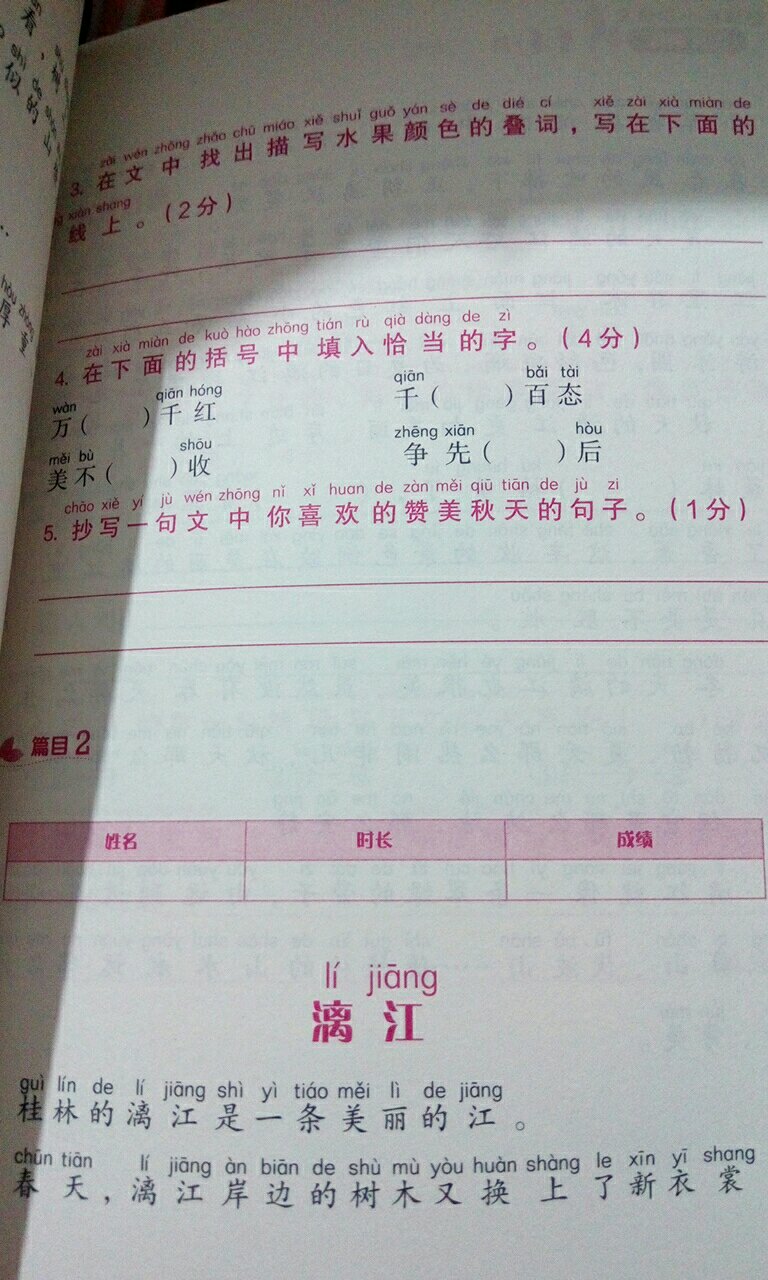 zài wén zhōng zhǎo chū miáo xiě shuǐ guǒ yán sè de dié cí xiě zài xià miàn de
3. 在文中找出描写水果颜色的叠词，写在下面的
xiàn shang
线上。（2分）
zài xià miàn de kuò hào zhōng tián rù qià dàng de zì
4. 在下面的括号中填入恰当的字。（4分）
wàn qiān hóng qiān bǎi tài
万（ ）千红 千（ ）百态
měi bù shōu zhēng xiān hòu
美不（ ）收 争先（ ）后
chāo xiě yí jù wén zhōng nǐ xǐ huan de zàn měi qiū tiān de jù zi
5. 抄写一句文中你喜欢的赞美秋天的句子。（1分）
篇目2
姓名 时长 成绩
lí jiāng
漓江
guì lín de lí jiāng shì yì tiáo měi lì de jiāng
桂林的漓江是一条美丽的江。
chūn tiān lí jiāng àn biān de shù mù yòu huàn shàng le xīn yī shang
春天，漓江岸边的树木又换上了新衣裳